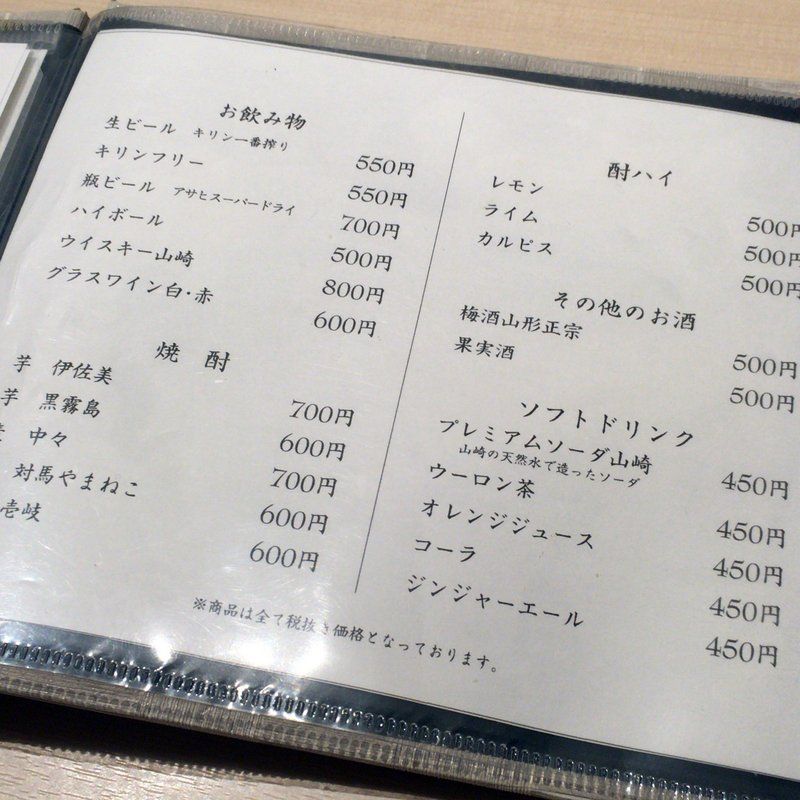 お飲み物
生ビール キリン一番搾り 550円
キリンフリー 550円
瓶ビール アサヒスーパードライ 700円
ハイボール 500円
ウイスキー山崎 800円
グラスワイン白・赤 600円
焼酎
芋 伊佐美 700円
芋 黒霧島 600円
中々 700円
対馬やまねこ 600円
壱岐 600円
酎ハイ
レモン 500円
ライム 500円
カルピス 500円
その他のお酒
梅酒山形正宗 500円
果実酒 500円
ソフトドリンク
プレミアムソーダ山崎 450円
山崎の天然水で造ったソーダ
ウーロン茶 450円
オレンジジュース 450円
コーラ 450円
ジンジャーエール 450円
※商品は全て税抜き価格となっております。